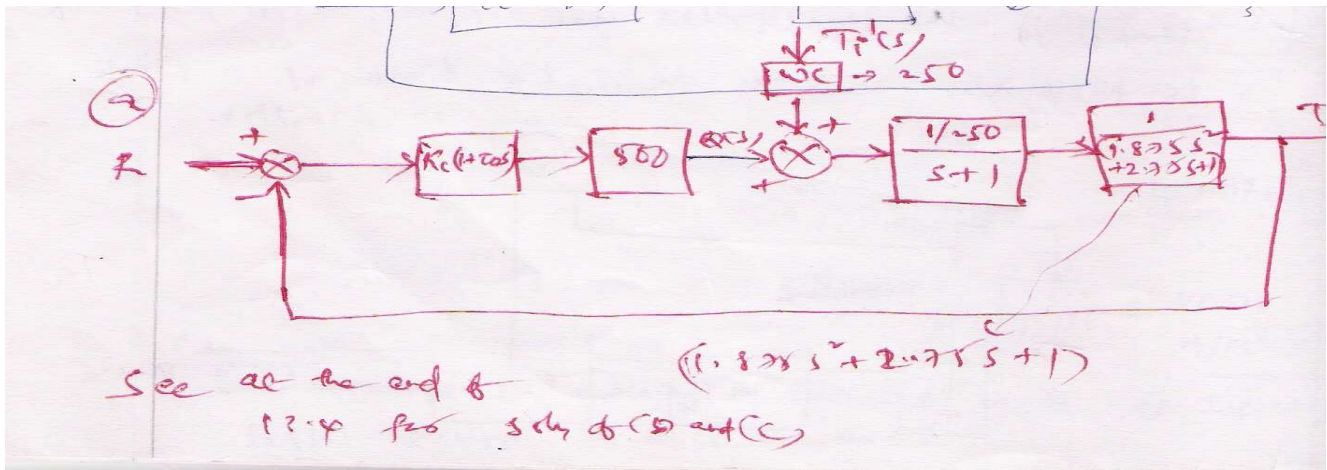 Ti'(s)
wc → 250
(a)
R
+
-
Kc(1+τDs)
500
Q(s)
+
+
1/250
s+1
1
1.875s²
+2.75s+1
T
(1.875s²+2.75s+1)
See at the end of
13.4 for soln of (b) and (c)